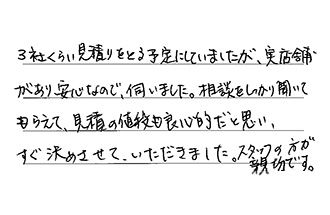 3社くらい見積りをとる予定にしていましたが、実店舗
があり安心なので、伺いました。相談をしっかり聞いて
もらえて、見積の値段も良心的だと思い、
すぐ決めさせて、いただきました。スタッフの方が
親切です。